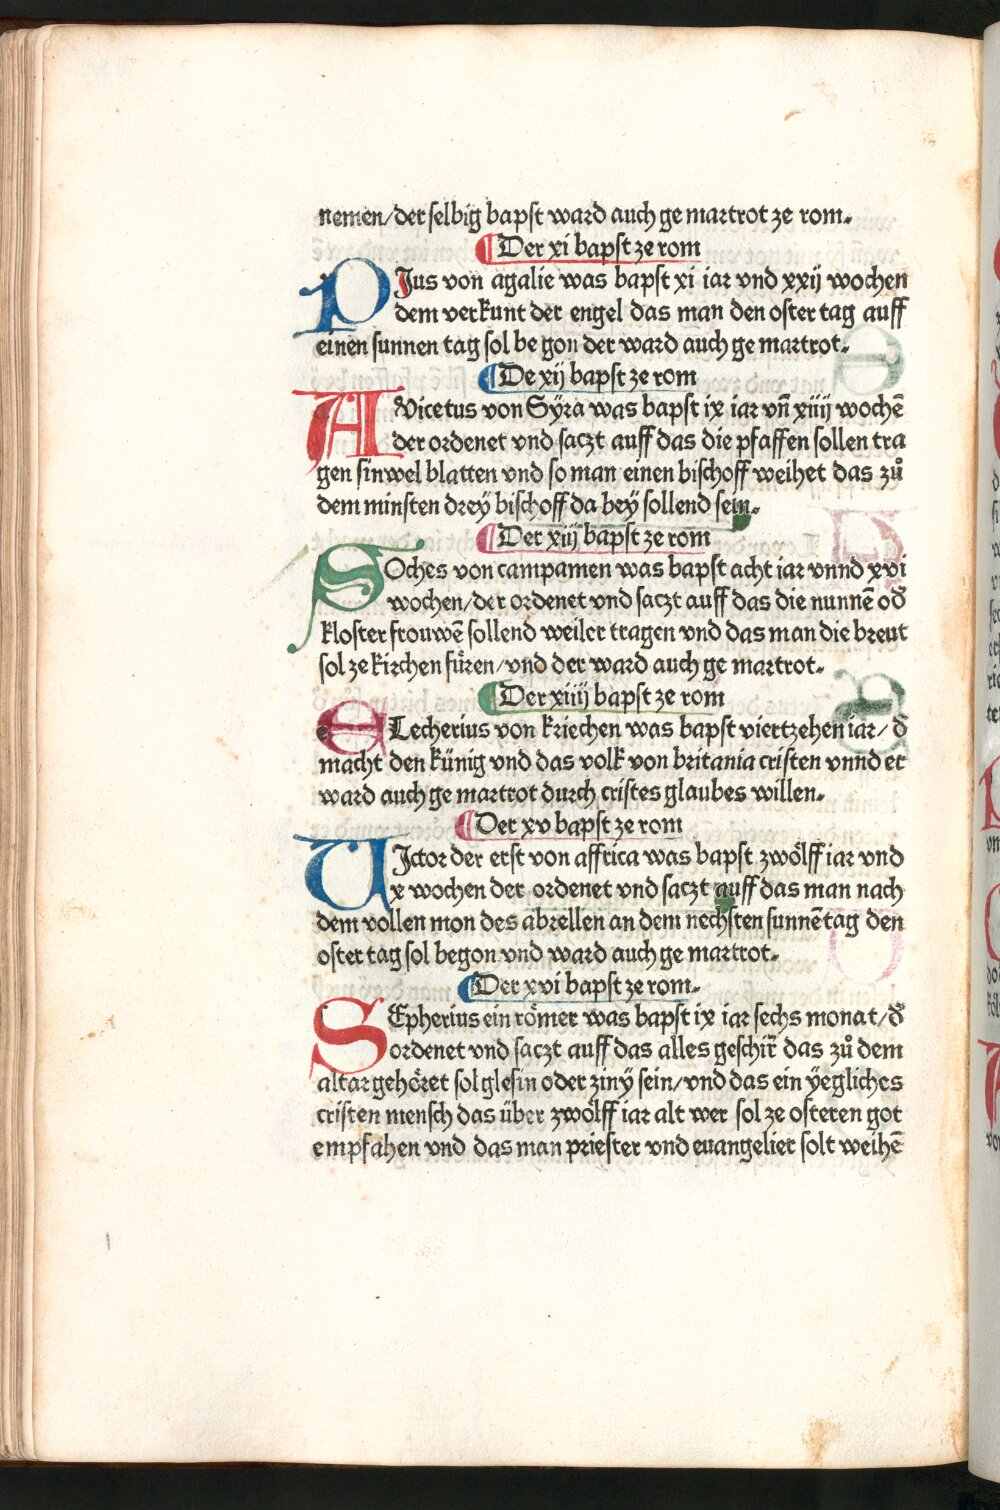 nemen/der selbig bapst ward auch ge martrot ze rom.
Der xi bapst ze rom
PJus von agalie was bapst xi iar vnd xxij wochen
dem verkunt der engel das man den oster tag auff
einen sunnen tag sol be gon der ward auch ge martrot.
De xij bapst ze rom
AVicetus von Syra was bapst ix iar vñ xiiij wochē
der ordenet vnd saczt auff das die pfaffen sollen tra
gen sinwel blatten vnd so man einen bischoff weihet das zů
dem minsten drey bischoff da bey sollend sein.
Der xiij bapst ze rom
SOches von campamen was bapst acht iar vnnd xvi
wochen/der ordenet vnd saczt auff das die nunnē od̛
kloster frouwē sollend weiler tragen vnd das man die breut
sol ze kirchen füren/vnd der ward auch ge martrot.
Der xiiij bapst ze rom
ELecherius von kriechen was bapst viertzehen iar/d̛
macht den künig vnd das volk von britania cristen vnnd er
ward auch ge martrot durch cristes glaubes willen.
Der xv bapst ze rom
VJctor der erst von affrica was bapst zwölff iar vnd
x wochen der ordenet vnd saczt auff das man nach
dem vollen mon des abrellen an dem nechsten sunnētag den
oster tag sol begon vnd ward auch ge martrot.
Der xvi bapst ze rom.
SEpherius ein römer was bapst ix iar sechs monat/d̛
ordenet vnd saczt auff das alles geschir̄ das zů dem
altar gehöret sol glesin oder ziny sein/vnd das ein yegliches
cristen mensch das über zwölff iar alt wer sol ze osteren got
empfahen vnd das man priester vnd euangelier solt weihē